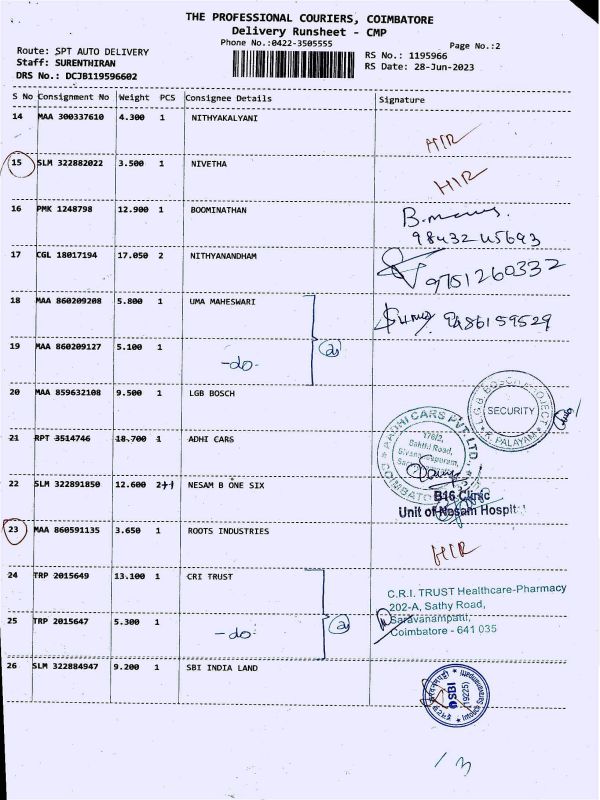 THE PROFESSIONAL COURIERS, COIMBATORE
Delivery Runsheet - CMP
Phone No.:0422-3505555
Page No.:2
Route: SPT AUTO DELIVERY
Staff: SURENTHIRAN
DRS No.: DCJB119596602
RS No.: 1195966
RS Date: 28-Jun-2023
S No Consignment No Weight PCS Consignee Details Signature
14 MAA 300337610 4.300 1 NITHYAKALYANI
HIR
15 SLM 322882022 3.500 1 NIVETHA
HIR
16 PMK 1248798 12.900 1 BOOMINATHAN
9843245693
17 CGL 18017194 17.050 2 NITHYANANDHAM
9751260332
18 MAA 860209208 5.800 1 UMA MAHESWARI
9486159529
19 MAA 860209127 5.100 1
-do-
②
20 MAA 859632108 9.500 1 LGB BOSCH
SECURITY
21 RPT 3514746 18.700 1 ADHI CARS
AADHI CARS PVT LTD.
176/2,
Sakthi Road,
COIMBATO
22 SLM 322891850 12.600 2 NESAM B ONE SIX
B16 Clinic
Unit of Nesam Hospit
23 MAA 860591135 3.650 1 ROOTS INDUSTRIES
HIR
24 TRP 2015649 13.100 1 CRI TRUST
C.R.I. TRUST Healthcare-Pharmacy
202-A, Sathy Road,
Saravanampatti,
Coimbatore - 641 035
25 TRP 2015647 5.300 1
-do-
②
26 SLM 322884947 9.200 1 SBI INDIA LAND
SBI